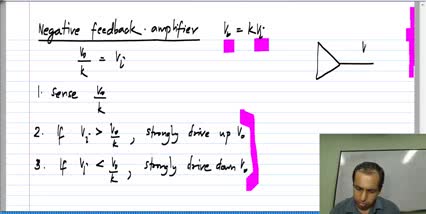 Negative feedback amplifier V₀ = kVᵢ
V₀/k = Vᵢ
V
1. Sense V₀/k
2. If Vᵢ > V₀/k, strongly drive up V₀
3. If Vᵢ < V₀/k, strongly drive down V₀